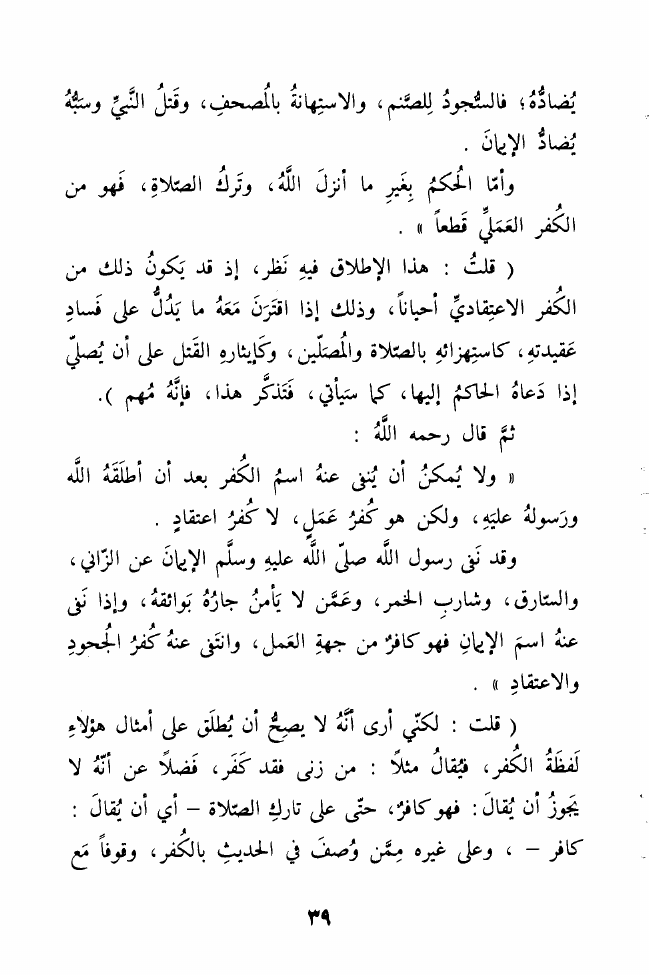 يُضادُّهُ؛ فالسُّجودُ لِلصَّنم، والاستِهانةُ بالمُصحفِ، وقَتلُ النَّبيِّ وسَبُّهُ
يُضادُّ الإيمانَ .
وأمّا الحُكمُ بِغَيرِ ما أنزلَ اللَّهُ، وتَركُ الصّلاةِ، فَهو من
الكُفر العَمَليِّ قَطعاً » .
( قلتُ : هذا الإطلاق فيهِ نَظر، إذ قد يَكونُ ذلك من
الكُفر الاعتِقاديِّ أحياناً، وذلك إذا اقتَرَنَ مَعَهُ ما يَدُلُّ على فَسادِ
عَقيدتهِ، كاستِهزائهِ بالصّلاة والمُصَلّين، وكَإيثارهِ القَتل على أن يُصليّ
إذا دَعاهُ الحاكمُ إليها، كما سَيأتي، فَتَذكَّر هذا، فإنَّهُ مُهم ).
ثمَّ قال رحمه اللَّهُ :
« ولا يُمكنُ أن يُنفى عنهُ اسمُ الكُفر بعد أن أطلَقَهُ اللَّه
ورَسولهُ عليَهِ، ولكن هو كُفرُ عَمَلٍ، لا كُفرُ اعتقادٍ .
وقد نَفى رسول اللَّه صلّى اللَّه عليهِ وسلَّم الإيمانَ عن الزّاني،
والسّارق، وشاربِ الخمر، وعَمَّن لا يَأمنُ جارُهُ بَوائقهُ، وإذا نَفى
عنهُ اسمَ الإيمانِ فهو كافرٌ من جهةِ العَمل، وانتَفى عنهُ كُفرُ الجُحودِ
والاعتقادِ » .
( قلت : لكنّي أرى أنَّهُ لا يصحُّ أن يُطلَق على أمثال هؤلاءِ
لَفظَةُ الكُفر، فيُقالُ مثلاً : من زنى فقد كَفَر، فَضلاً عن أنّهُ لا
يَجوزُ أن يُقالَ : فهو كافرٌ، حتّى على تاركِ الصّلاة – أي أن يُقالَ :
كافر – ، وعلى غيره مِمَّن وُصفَ في الحديثِ بالكُفر، وقوفاً مَع
٣٩